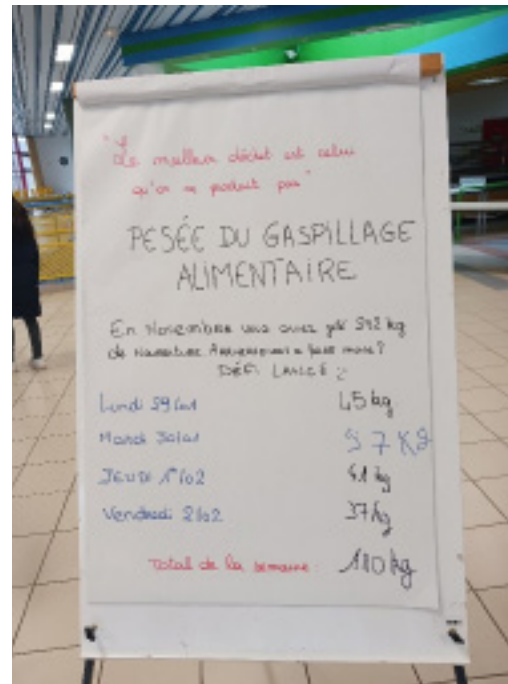 "Le meilleur déchet est celui
qu'on ne produit pas"
PESÉE DU GASPILLAGE
ALIMENTAIRE
En Novembre vous avez
de nourriture. Arriverez-vous a faire moins?
DÉFI LANCÉ
Lundi 29/01 45 kg
Mardi 30/01 57 KG
JEUDI 1er/02 41 kg
Vendredi 2/02 37 kg
Total de la semaine: 180 kg